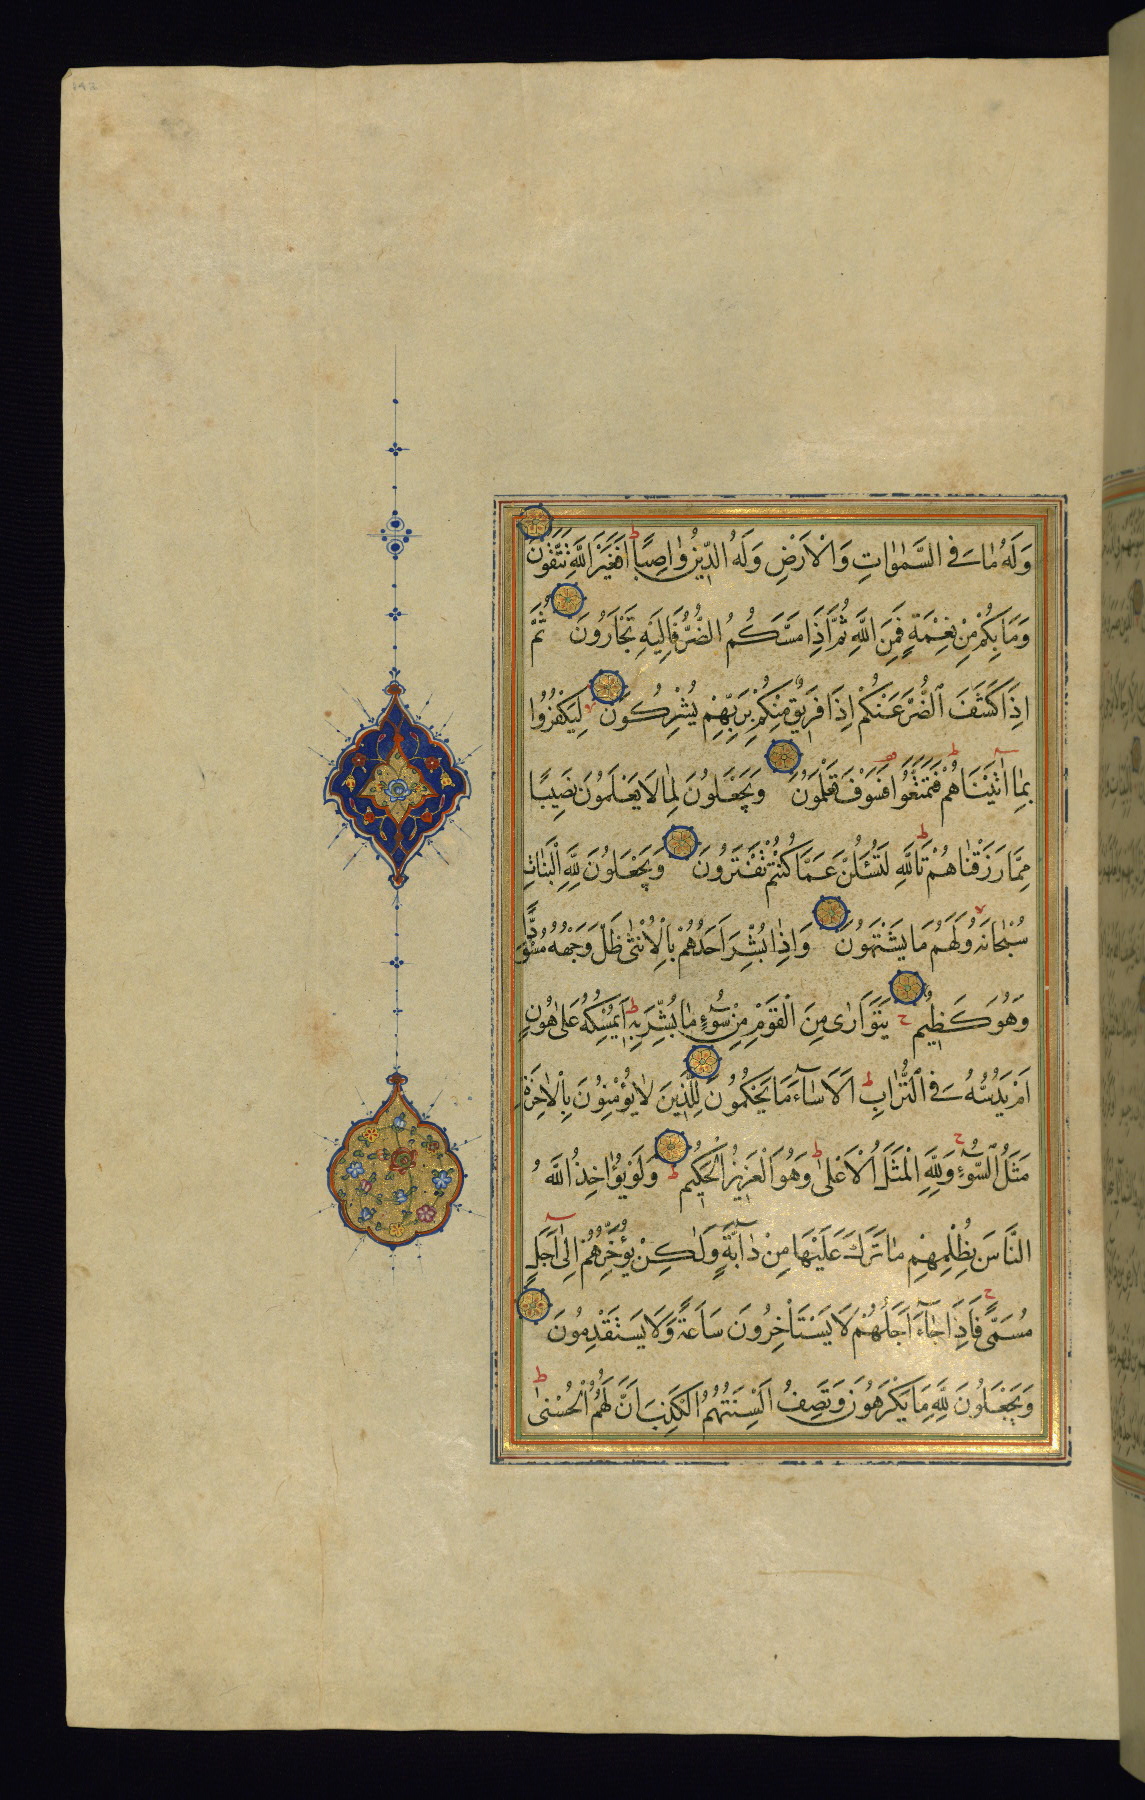 وَلَهُ مَا فِي السَّمٰوٰاتِ وَالْاَرْضِ وَلَهُ الدِّينُ وٰاصِبًا ط اَفَغَيْرَ اللّٰهِ تَتَّقُونَ
وَمَا بِكُمْ مِنْ نِعْمَةٍ فَمِنَ اللّٰهِ ثُمَّ اِذَا مَسَّكُمُ الضُّرُّ فَاِلَيْهِ تَجْاَرُونَ ثُمَّ
اِذَا كَشَفَ الضُّرَّ عَنْكُمْ اِذَا فَرِيقٌ مِنْكُمْ بِرَبِّهِمْ يُشْرِكُونَ لا لِيَكْفُرُوا
بِمٰا اٰتَيْنَاهُمْ ط فَتَمَتَّعُوا فَسَوْفَ تَعْلَمُونَ وَيَجْعَلُونَ لِمٰا لَا يَعْلَمُونَ نَصِيبًا
مِمَّا رَزَقْنٰاهُمْ ط تَاللّٰهِ لَتُسْئَلُنَّ عَمَّا كُنْتُمْ تَفْتَرُونَ وَيَجْعَلُونَ لِلّٰهِ الْبَنٰاتِ
سُبْحٰانَهُ لا وَلَهُمْ مَا يَشْتَهُونَ وَاِذٰا بُشِّرَ اَحَدُهُمْ بِالْاُنْثٰى ظَلَّ وَجْهُهُ مُسْوَدًّا
وَهُوَ كَظِيمٌ ج يَتَوَارٰى مِنَ الْقَوْمِ مِنْ سُوۤءِ مٰا بُشِّرَ بِهِ ط اَيُمْسِكُهُ عَلٰى هُونٍ
اَمْ يَدُسُّهُ فِي التُّرٰابِ ط اَلَا سٰاۤءَ مَا يَحْكُمُونَ لِلَّذِينَ لٰا يُؤْمِنُونَ بِالْاٰخِرَةِ
مَثَلُ السَّوْءِ ج وَلِلّٰهِ الْمَثَلُ الْاَعْلٰى ط وَهُوَ الْعَزِيزُ الْحَكِيمُ ط وَلَوْ يُؤٰاخِذُ اللّٰهُ
النَّاسَ بِظُلْمِهِمْ مٰا تَرَكَ عَلَيْهٰا مِنْ دٰاۤبَّةٍ وَلٰكِنْ يُؤَخِّرُهُمْ اِلٰى اَجَلٍ
مُسَمًّى ج فَاِذَا جٰاۤءَ اَجَلُهُمْ لَا يَسْتَأْخِرُونَ سَاعَةً وَلَا يَسْتَقْدِمُونَ
وَيَجْعَلُونَ لِلّٰهِ مَا يَكْرَهُونَ وَتَصِفُ اَلْسِنَتُهُمُ الْكَذِبَ اَنَّ لَهُمُ الْحُسْنٰى ط